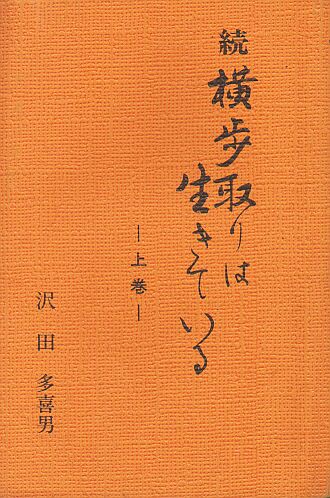 続 横歩取りは
生きている
―上巻―
沢田 多喜男